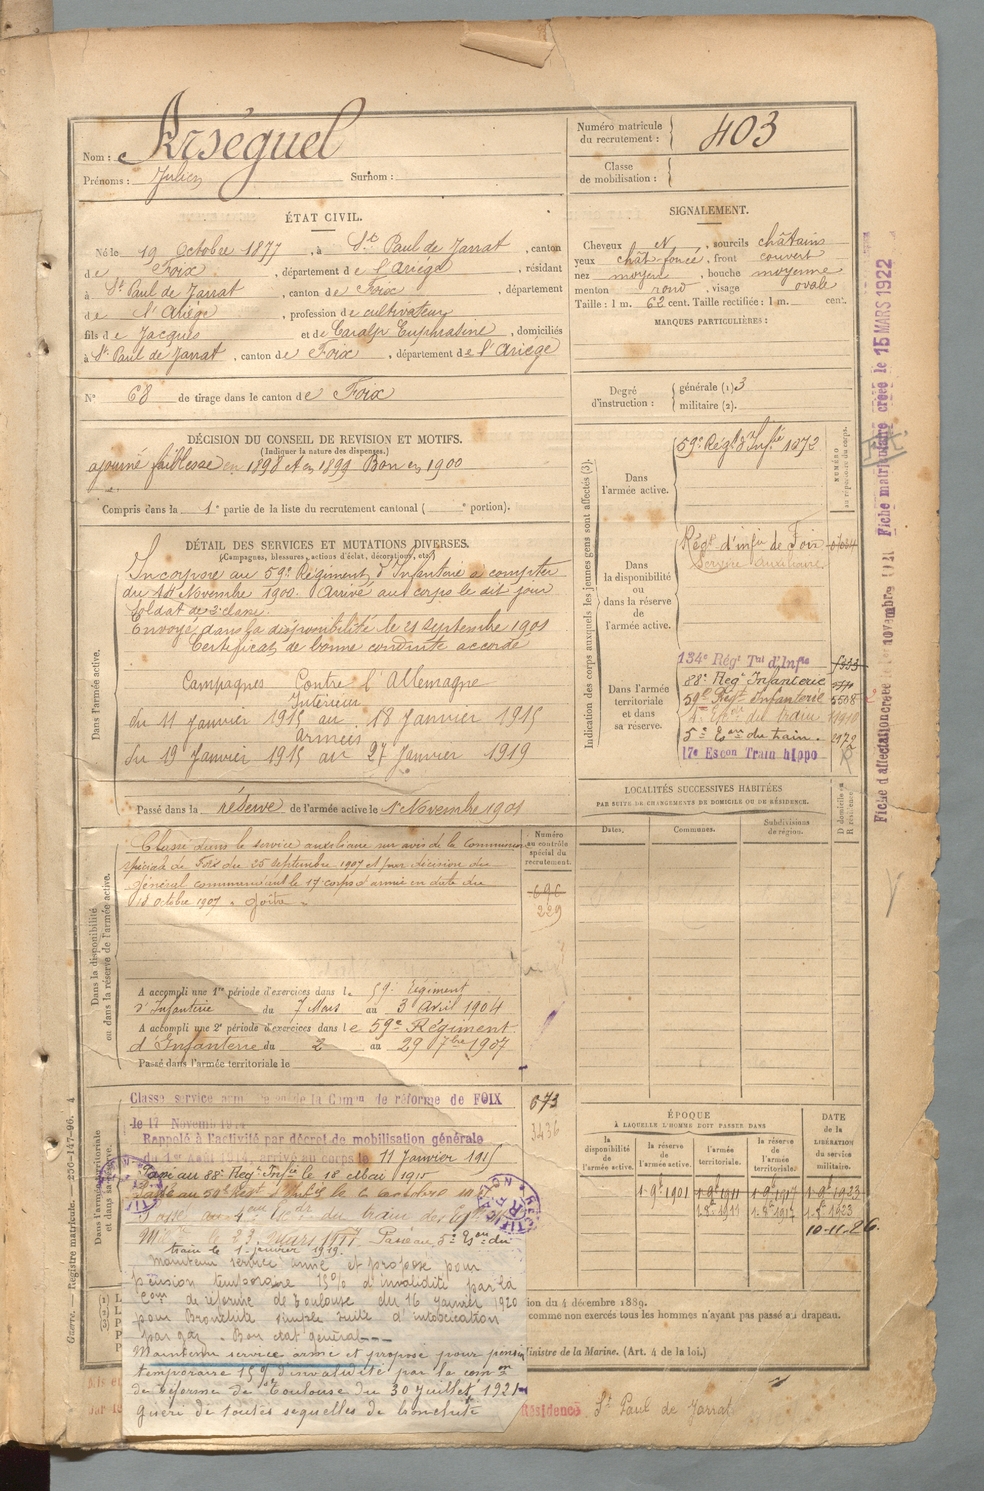 Nom : Arséguel
Prénoms : Julien Surnom :
Numéro matricule du recrutement : 403
Classe de mobilisation :
ÉTAT CIVIL.
Né le 19 Octobre 1877, à St Paul de Jarrat, canton
de Foix, département de l'Ariège, résidant
à St Paul de Jarrat, canton de Foix, département
de l'Ariège, profession de cultivateur
fils de Jacques et de Caralp Euphrasine, domiciliés
à St Paul de Jarrat, canton de Foix, département de l'Ariège
N° 68 de tirage dans le canton de Foix
SIGNALEMENT.
Cheveux N, sourcils châtains
yeux chât foncé, front couvert
nez moyen, bouche moyenne
menton rond, visage ovale
Taille : 1 m. 62 cent. Taille rectifiée : 1 m. cent.
MARQUES PARTICULIÈRES :
Degré d'instruction : générale (1) 3
militaire (2).
DÉCISION DU CONSEIL DE REVISION ET MOTIFS.
(Indiquer la nature des dispenses.)
ajourné faiblesse en 1898 et en 1899 Bon en 1900
Compris dans la 1e partie de la liste du recrutement cantonal ( e portion).
DÉTAIL DES SERVICES ET MUTATIONS DIVERSES.
(Campagnes, blessures, actions d'éclat, décorations, etc.)
Dans l'armée active.
Incorporé au 59e Régiment d'Infanterie à compter
du Novembre 1900. Arrivé au corps le dit jour
Soldat de 2e classe.
Envoyé dans la disponibilité le 21 septembre 1901
Certificat de bonne conduite accordé
Campagnes Contre l'Allemagne
Intérieur
du 11 Janvier 1915 au 18 Janvier 1915
Armées
du 19 Janvier 1915 au 27 Janvier 1919
Passé dans la réserve de l'armée active le 1 Novembre 1901
Indication des corps auxquels les jeunes gens sont affectés (3).
NUMÉRO au répertoire du corps.
Dans l'armée active.
59e Régt d'Infie 1072
Dans la disponibilité ou dans la réserve de l'armée active.
Régt d'infie de Foix
Service auxiliaire
Dans l'armée territoriale et dans sa réserve.
134e Régt Tal d'Infie
88e Régt Infanterie
59e Régt Infanterie 5508
du train 1910
5e Eson du train. 2172
17e Escon Train hippo
Fiche matriculaire créée le 15 MARS 1922
Fiche d'affectation créée le novembre
LOCALITÉS SUCCESSIVES HABITÉES
PAR SUITE DE CHANGEMENTS DE DOMICILE OU DE RÉSIDENCE.
Dates. Communes. Subdivisions de région. D domicile ou R résidence
Dans la disponibilité ou dans la réserve de l'armée active.
Numéro au contrôle spécial du recrutement.
Classé dans le service auxiliaire sur avis de la Commission
spéciale de Foix du 25 septembre 1907 et par décision du
général commandant le 17e corps d'armée en date du
18 octobre 1907 « Goitre »
229
A accompli une 1re période d'exercices dans le 59e régiment
d'Infanterie du 7 Mars au 3 Avril 1904
A accompli une 2e période d'exercices dans le 59e Régiment
d'Infanterie du 2 au 29 7bre 1907
Passé dans l'armée territoriale le
Dans l'armée territoriale et dans sa réserve.
Classé service armé de la Comon de réforme de FOIX 673
le 17 Novembre 1914 3436
Rappelé à l'activité par décret de mobilisation générale
du 1er Août 1914, arrivé au corps le 11 Janvier 1915
Passé au 88e Régt Infie le 18 Mai 1915
Passé au 59e Régt d'Infie le 6 octobre
Passé au du train des Eq
le 23 Mars 1917 Passé au 5e Eson du
train le 1 janvier 1919.
Maintenu service armé et proposé pour
pension temporaire 15% d'invalidité par la
Com de réforme de Toulouse du 16 janvier 1920
pour Bronchite simple suite d'intoxication
par gaz. Bon état général
Maintenu service armé et proposé pour pension
temporaire 15% d'invalidité par la comon
de réforme de Toulouse du 30 juillet 1921
guéri de toutes sequelles de bronchite
ÉPOQUE
À LAQUELLE L'HOMME DOIT PASSER DANS
la disponibilité de l'armée active. la réserve de l'armée active. l'armée territoriale. la réserve de l'armée territoriale.
DATE de la LIBÉRATION du service militaire.
1.9e 1901 1.9e 1911 1.9e 1917 1.9e 1923
10-11-26.
ion du 4 décembre 1889.
comme non exercés tous les hommes n'ayant pas passé au drapeau.
Ministre de la Marine. (Art. 4 de la loi.)
Résidence St Paul de Jarrat
Guerre. — Registre matricule. — 256-147-96. 4